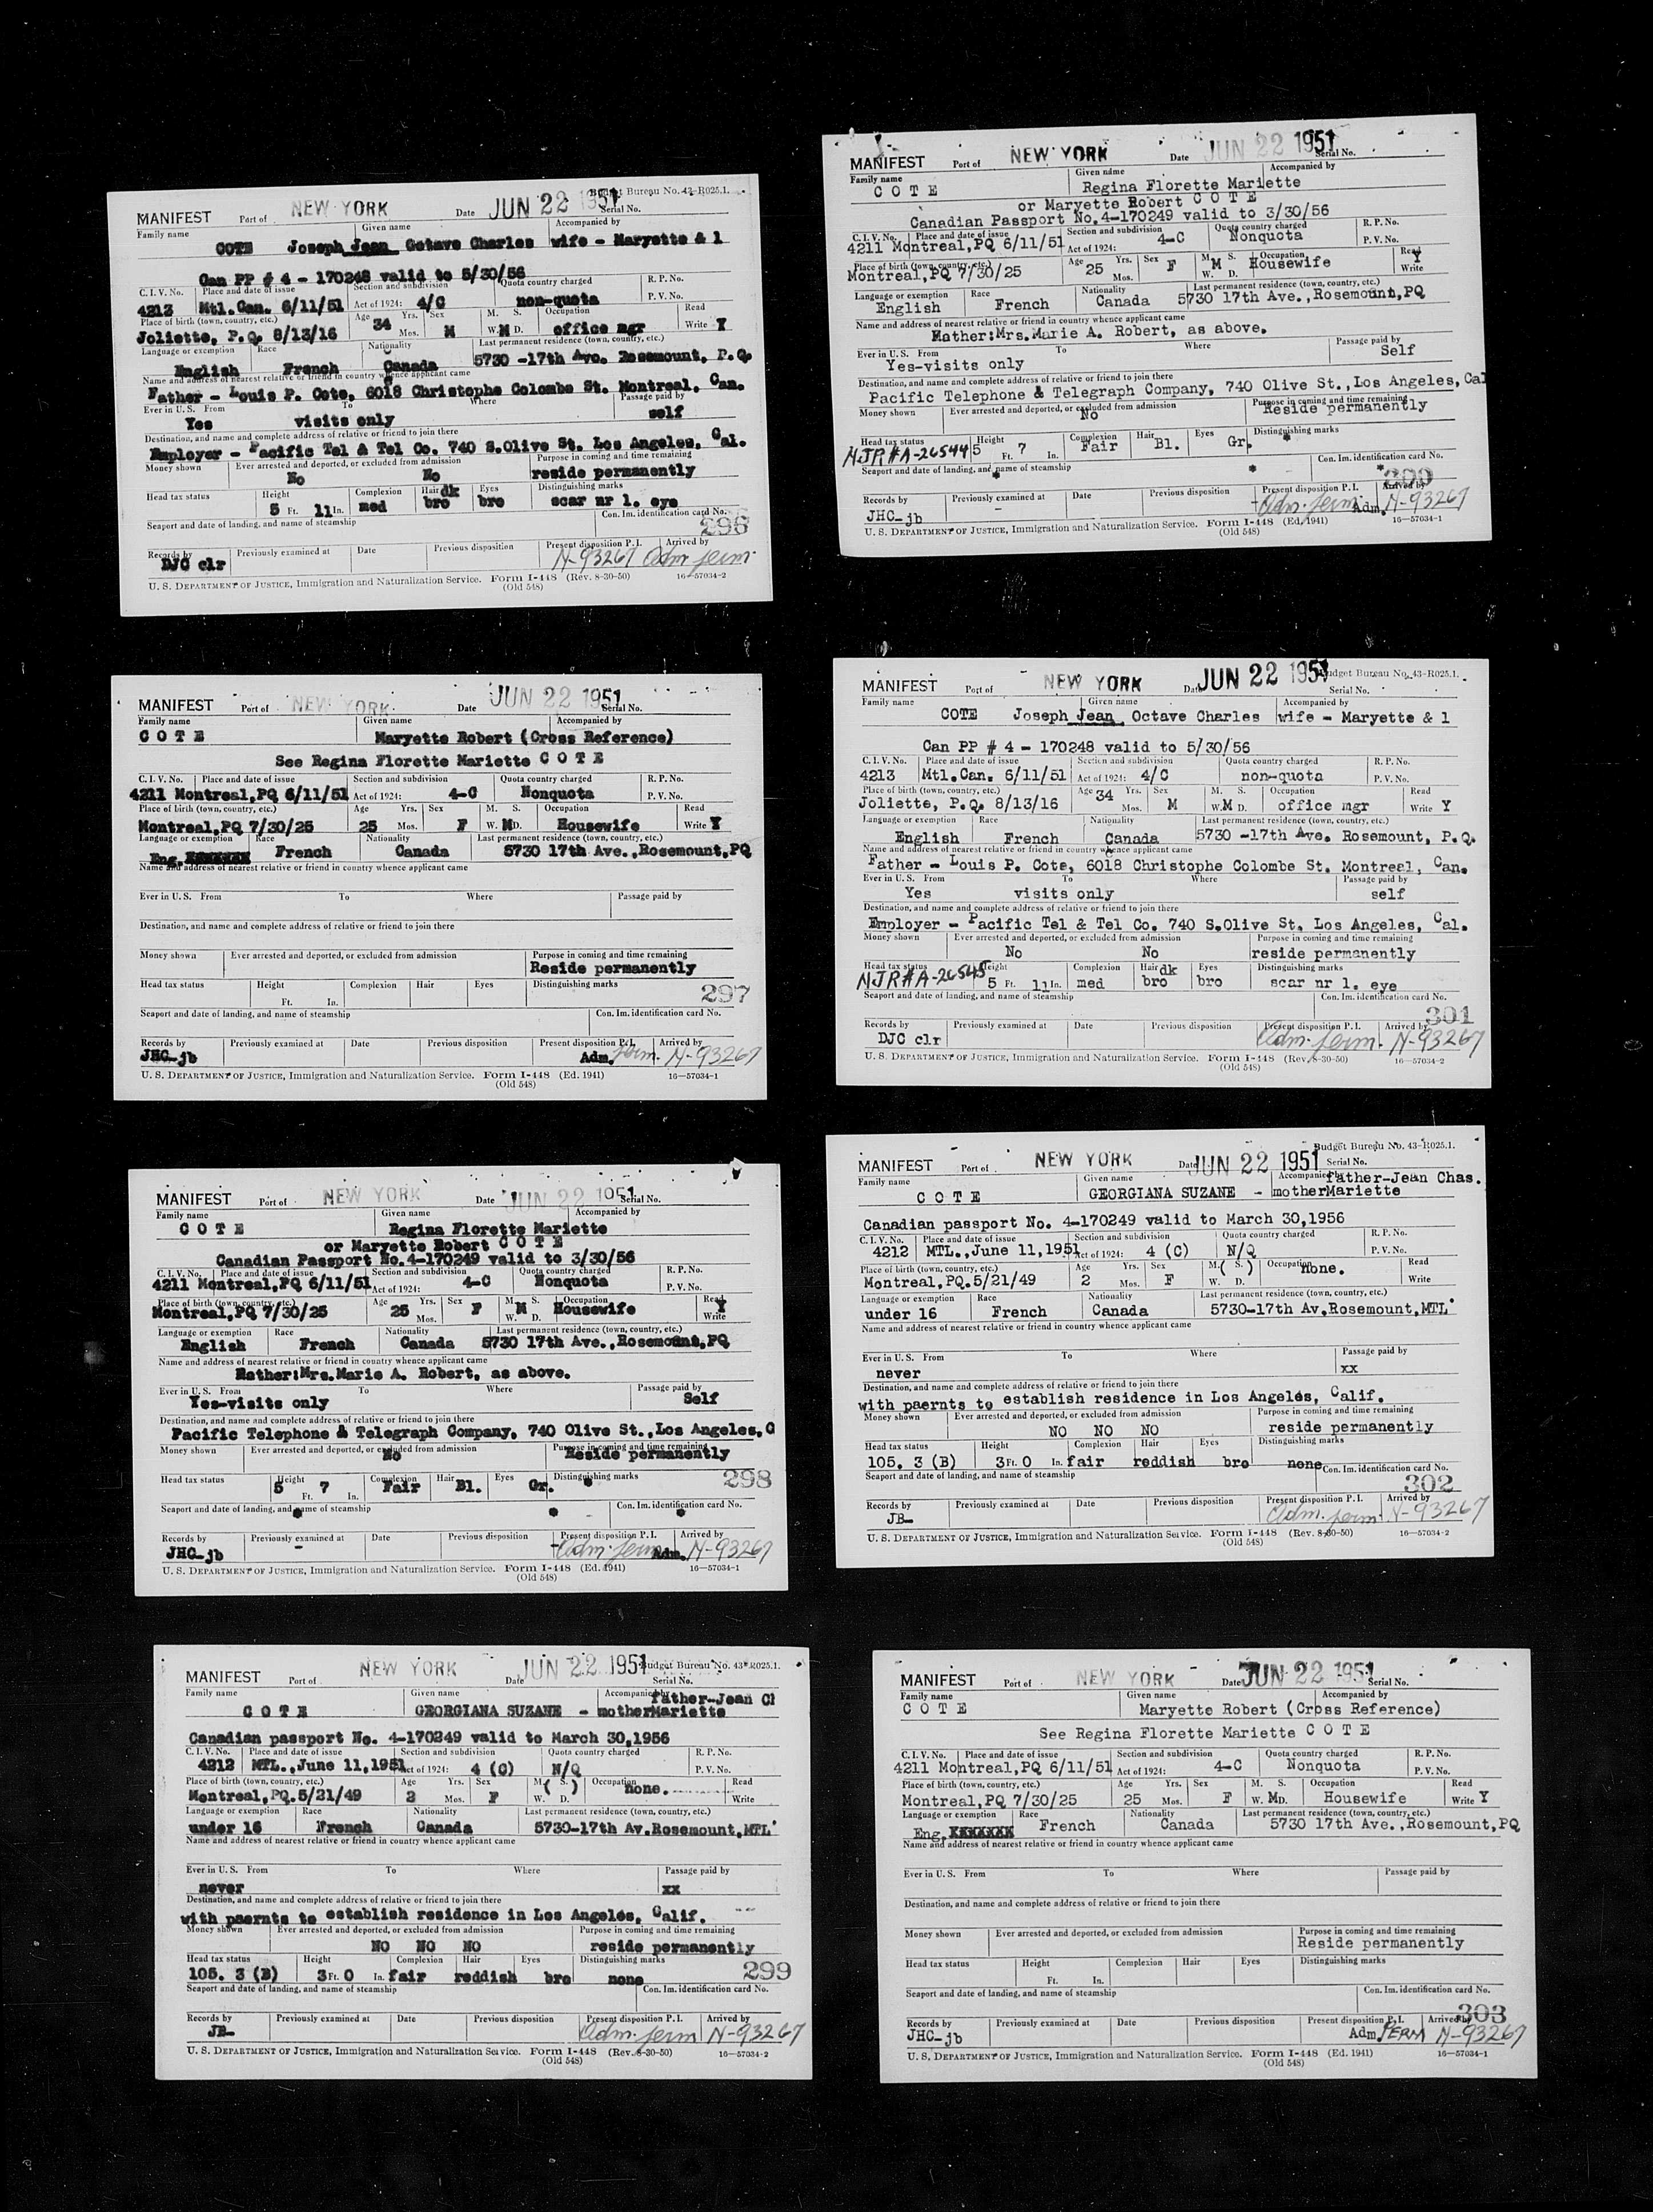 Budget Bureau No. 43-R025.1.
MANIFEST Port of NEW YORK Date JUN 22 1951 Serial No.
Family name Given name Accompanied by
COTE Joseph Jean Octave Charles wife - Maryette & 1
Can PP # 4 - 170248 valid to 5/30/56
C. I. V. No. Place and date of issue Section and subdivision Quota country charged R. P. No.
4213 Mtl.Can. 6/11/51 Act of 1924: 4/C non-quota P. V. No.
Place of birth (town, country, etc.) Age Yrs. Sex M. S. Occupation Read
Joliette, P.Q. 8/13/16 34 Mos. M W. M D. office mgr Write Y
Language or exemption Race Nationality Last permanent residence (town, country, etc.)
English French Canada 5730 -17th Ave. Rosemount, P.Q.
Name and address of nearest relative or friend in country whence applicant came
Father - Louis P. Cote, 6018 Christophe Colombe St. Montreal, Can.
Ever in U. S. From To Where Passage paid by
Yes visits only self
Destination, and name and complete address of relative or friend to join there
Employer - Pacific Tel & Tel Co. 740 S.Olive St. Los Angeles, Cal.
Money shown Ever arrested and deported, or excluded from admission Purpose in coming and time remaining
No No reside permanently
Head tax status Height Complexion Hair dk Eyes Distinguishing marks
5 Ft. 11 In. med bro bro scar nr l. eye
Seaport and date of landing, and name of steamship Con. Im. identification card No.
296
Records by Previously examined at Date Previous disposition Present disposition P. I. Arrived by
DJC clr N-93267 Adm perm.
U. S. DEPARTMENT OF JUSTICE, Immigration and Naturalization Service. Form I-448 (Rev. 8-30-50) 16-57034-2
(Old 548)
MANIFEST Port of NEW YORK Date JUN 22 1951 Serial No.
Family name Given name Accompanied by
C O T E Maryette Robert (Cross Reference)
See Regina Florette Mariette C O T E
C. I. V. No. Place and date of issue Section and subdivision Quota country charged R. P. No.
4211 Montreal,PQ 6/11/51 Act of 1924: 4-C Nonquota P. V. No.
Place of birth (town, country, etc.) Age Yrs. Sex M. S. Occupation Read
Montreal,PQ 7/30/25 25 Mos. F W. MD. Housewife Write Y
Language or exemption Race Nationality Last permanent residence (town, country, etc.)
Eng. French Canada 5730 17th Ave.,Rosemount,PQ
Name and address of nearest relative or friend in country whence applicant came
Ever in U. S. From To Where Passage paid by
Destination, and name and complete address of relative or friend to join there
Money shown Ever arrested and deported, or excluded from admission Purpose in coming and time remaining
Reside permanently
Head tax status Height Complexion Hair Eyes Distinguishing marks
Ft. In. 297
Seaport and date of landing, and name of steamship Con. Im. identification card No.
Records by Previously examined at Date Previous disposition Present disposition P. I. Arrived by
JHC-jb Adm. perm. N-93267
U. S. DEPARTMENT OF JUSTICE, Immigration and Naturalization Service. Form I-448 (Ed. 1941) 16-57034-1
(Old 548)
MANIFEST Port of NEW YORK Date JUN 22 1951 Serial No.
Family name Given name Accompanied by
C O T E Regina Florette Mariette
or Maryette Robert C O T E
Canadian Passport No.4-170249 valid to 3/30/56
C. I. V. No. Place and date of issue Section and subdivision Quota country charged R. P. No.
4211 Montreal,PQ 6/11/51 Act of 1924: 4-C Nonquota P. V. No.
Place of birth (town, country, etc.) Age Yrs. Sex M. S. Occupation Read
Montreal,PQ 7/30/25 25 Mos. F M W. D. Housewife Y Write
Language or exemption Race Nationality Last permanent residence (town, country, etc.)
English French Canada 5730 17th Ave.,Rosemount,PQ
Name and address of nearest relative or friend in country whence applicant came
Mather:Mrs.Marie A. Robert, as above.
Ever in U. S. From To Where Passage paid by
Yes-visits only Self
Destination, and name and complete address of relative or friend to join there
Pacific Telephone & Telegraph Company, 740 Olive St.,Los Angeles,C
Money shown Ever arrested and deported, or excluded from admission Purpose in coming and time remaining
No Reside permanently
Head tax status Height Complexion Hair Eyes Distinguishing marks 298
5 Ft. 7 In. Fair Bl. Gr. *
Seaport and date of landing, and name of steamship Con. Im. identification card No.
* * - *
Records by Previously examined at Date Previous disposition Present disposition P. I. Arrived by
JHC-jb - Adm. perm Adm. N-93267
U. S. DEPARTMENT OF JUSTICE, Immigration and Naturalization Service. Form I-448 (Ed. 1941) 16-57034-1
(Old 548)
Budget Bureau No. 43-R025.1.
MANIFEST Port of NEW YORK Date JUN 22 1951 Serial No.
Family name Given name Accompanied by father-Jean Ch
C O T E GEORGIANA SUZANE - motherMariette
Canadian passport No. 4-170249 valid to March 30,1956
C. I. V. No. Place and date of issue Section and subdivision Quota country charged R. P. No.
4212 MTL.,June 11,1951 Act of 1924: 4 (C) N/Q P. V. No.
Place of birth (town, country, etc.) Age Yrs. Sex M. ( S. ) Occupation Read
Montreal,PQ.5/21/49 2 Mos. F W. D. none. Write
Language or exemption Race Nationality Last permanent residence (town, country, etc.)
under 16 French Canada 5730-17th Av.Rosemount,MTL'
Name and address of nearest relative or friend in country whence applicant came
Ever in U. S. From To Where Passage paid by
never xx
Destination, and name and complete address of relative or friend to join there
with paernts to establish residence in Los Angeles, Calif.
Money shown Ever arrested and deported, or excluded from admission Purpose in coming and time remaining
NO NO NO reside permanently
Head tax status Height Complexion Hair Eyes Distinguishing marks
105. 3 (B) 3 Ft. 0 In. fair reddish bro none 299
Seaport and date of landing, and name of steamship Con. Im. identification card No.
Records by Previously examined at Date Previous disposition Present disposition P. I. Arrived by
JB- Adm. perm N-93267
U. S. DEPARTMENT OF JUSTICE, Immigration and Naturalization Service. Form I-448 (Rev. 8-30-50) 16-57034-2
(Old 548)
MANIFEST Port of NEW YORK Date JUN 22 1951 Serial No.
Family name Given name Accompanied by
C O T E Regina Florette Mariette
or Maryette Robert C O T E
Canadian Passport No.4-170249 valid to 3/30/56
C. I. V. No. Place and date of issue Section and subdivision Quota country charged R. P. No.
4211 Montreal,PQ 6/11/51 Act of 1924: 4-C Nonquota P. V. No.
Place of birth (town, country, etc.) Age Yrs. Sex M. S. Occupation Read
Montreal,PQ 7/30/25 25 Mos. F M W. D. Housewife Y Write
Language or exemption Race Nationality Last permanent residence (town, country, etc.)
English French Canada 5730 17th Ave.,Rosemount,PQ
Name and address of nearest relative or friend in country whence applicant came
Mather:Mrs.Marie A. Robert, as above.
Ever in U. S. From To Where Passage paid by
Yes-visits only Self
Destination, and name and complete address of relative or friend to join there
Pacific Telephone & Telegraph Company, 740 Olive St.,Los Angeles,Cal
Money shown Ever arrested and deported, or excluded from admission Purpose in coming and time remaining
No Reside permanently
Head tax status Height Complexion Hair Eyes Distinguishing marks
NJR#A-26544 5 Ft. 7 In. Fair Bl. Gr. *
Seaport and date of landing, and name of steamship Con. Im. identification card No.
* * - * 300
Records by Previously examined at Date Previous disposition Present disposition P. I. Arrived by
JHC-jb - Adm. perm. Adm. N-93267
U. S. DEPARTMENT OF JUSTICE, Immigration and Naturalization Service. Form I-448 (Ed. 1941) 16-57034-1
(Old 548)
Budget Bureau No. 43-R025.1.
MANIFEST Port of NEW YORK Date JUN 22 1951 Serial No.
Family name Given name Accompanied by
COTE Joseph Jean Octave Charles wife - Maryette & 1
Can PP # 4 - 170248 valid to 5/30/56
C. I. V. No. Place and date of issue Section and subdivision Quota country charged R. P. No.
4213 Mtl.Can. 6/11/51 Act of 1924: 4/C non-quota P. V. No.
Place of birth (town, country, etc.) Age Yrs. Sex M. S. Occupation Read
Joliette, P.Q. 8/13/16 34 Mos. M W. M D. office mgr Write Y
Language or exemption Race Nationality Last permanent residence (town, country, etc.)
English French Canada 5730 -17th Ave. Rosemount, P.Q.
Name and address of nearest relative or friend in country whence applicant came
Father - Louis P. Cote, 6018 Christophe Colombe St. Montreal, Can.
Ever in U. S. From To Where Passage paid by
Yes visits only self
Destination, and name and complete address of relative or friend to join there
Employer - Pacific Tel & Tel Co. 740 S.Olive St. Los Angeles, Cal.
Money shown Ever arrested and deported, or excluded from admission Purpose in coming and time remaining
No No reside permanently
Head tax status Height Complexion Hair dk Eyes Distinguishing marks
NJR#A-26545 5 Ft. 11 In. med bro bro scar nr l. eye
Seaport and date of landing, and name of steamship Con. Im. identification card No.
301
Records by Previously examined at Date Previous disposition Present disposition P. I. Arrived by
DJC clr Adm. perm. N-93267
U. S. DEPARTMENT OF JUSTICE, Immigration and Naturalization Service. Form I-448 (Rev. 8-30-50) 16-57034-2
(Old 548)
Budget Bureau No. 43-R025.1.
MANIFEST Port of NEW YORK Date JUN 22 1951 Serial No.
Family name Given name Accompanied by father-Jean Chas.
C O T E GEORGIANA SUZANE - motherMariette
Canadian passport No. 4-170249 valid to March 30,1956
C. I. V. No. Place and date of issue Section and subdivision Quota country charged R. P. No.
4212 MTL.,June 11,1951 Act of 1924: 4 (C) N/Q P. V. No.
Place of birth (town, country, etc.) Age Yrs. Sex M. ( S. ) Occupation Read
Montreal,PQ.5/21/49 2 Mos. F W. D. none. Write
Language or exemption Race Nationality Last permanent residence (town, country, etc.)
under 16 French Canada 5730-17th Av.Rosemount,MTL'
Name and address of nearest relative or friend in country whence applicant came
Ever in U. S. From To Where Passage paid by
never xx
Destination, and name and complete address of relative or friend to join there
with paernts to establish residence in Los Angeles, Calif.
Money shown Ever arrested and deported, or excluded from admission Purpose in coming and time remaining
NO NO NO reside permanently
Head tax status Height Complexion Hair Eyes Distinguishing marks
105. 3 (B) 3 Ft. 0 In. fair reddish bro none
Seaport and date of landing, and name of steamship Con. Im. identification card No.
302
Records by Previously examined at Date Previous disposition Present disposition P. I. Arrived by
JB- Adm. perm. N-93267
U. S. DEPARTMENT OF JUSTICE, Immigration and Naturalization Service. Form I-448 (Rev. 8-30-50) 16-57034-2
(Old 548)
MANIFEST Port of NEW YORK Date JUN 22 1951 Serial No.
Family name Given name Accompanied by
C O T E Maryette Robert (Cross Reference)
See Regina Florette Mariette C O T E
C. I. V. No. Place and date of issue Section and subdivision Quota country charged R. P. No.
4211 Montreal,PQ 6/11/51 Act of 1924: 4-C Nonquota P. V. No.
Place of birth (town, country, etc.) Age Yrs. Sex M. S. Occupation Read
Montreal,PQ 7/30/25 25 Mos. F W. MD. Housewife Write Y
Language or exemption Race Nationality Last permanent residence (town, country, etc.)
Eng. French Canada 5730 17th Ave.,Rosemount,PQ
Name and address of nearest relative or friend in country whence applicant came
Ever in U. S. From To Where Passage paid by
Destination, and name and complete address of relative or friend to join there
Money shown Ever arrested and deported, or excluded from admission Purpose in coming and time remaining
Reside permanently
Head tax status Height Complexion Hair Eyes Distinguishing marks
Ft. In.
Seaport and date of landing, and name of steamship Con. Im. identification card No.
303
Records by Previously examined at Date Previous disposition Present disposition P. I. Arrived by
JHC-jb Adm. PERM N-93267
U. S. DEPARTMENT OF JUSTICE, Immigration and Naturalization Service. Form I-448 (Ed. 1941) 16-57034-1
(Old 548)